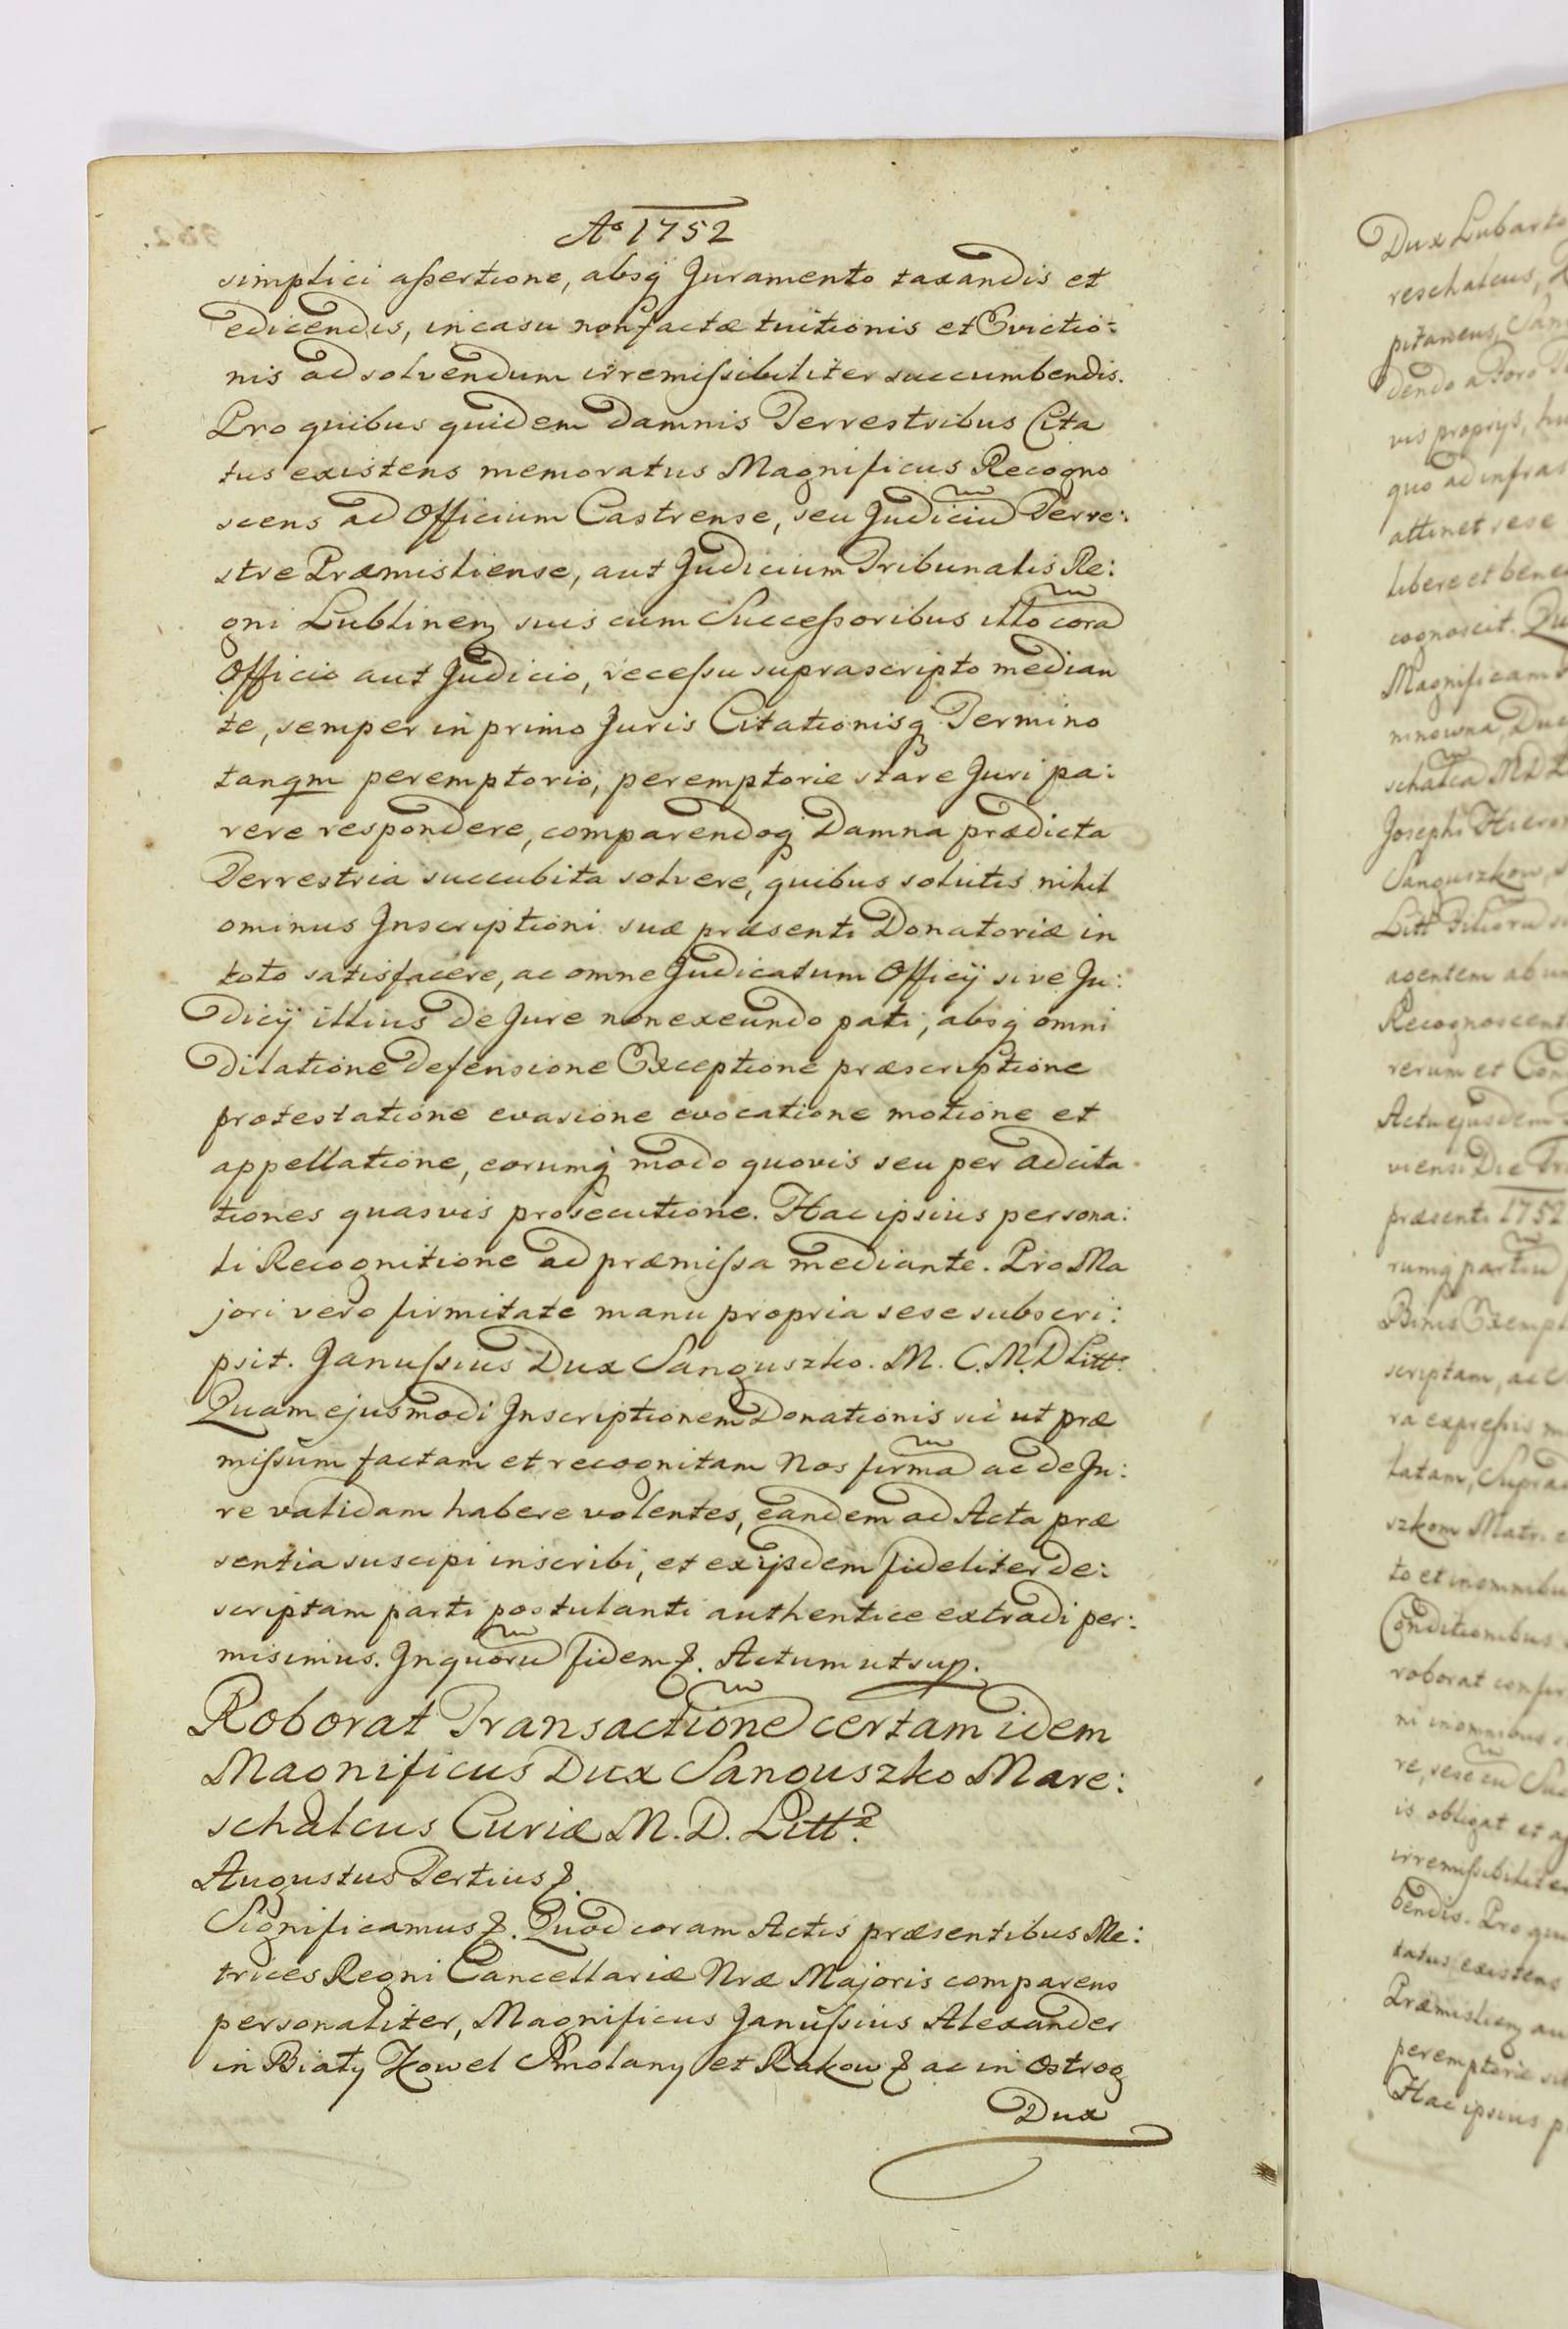 Aº 1752
simplici assertione, absq̃ Juramento taxandis et
edicendis, in casu non factæ tuitionis et Evictio:
nis ad solvendum irremissibiliter succumbendis.
Pro quibus quidem damnis Terrestribus Cita
tus existens memoratus Magnificus Recogno
scens ad Officium Castrense, seu Judiciũ Terre:
stre Præmisliense, aut Judicium Tribunalis Re:
gni Lublinenʒ suis cum Successoribus illo corã
Officio aut Judicio, recessu suprascripto median
te, semper in primo Juris Citationisq̃ Termino
tanqm peremptorio, peremptorie stare Juri pa:
rere respondere, comparendoq̃ Damna prædicta
Terrestria succubita solvere, quibus solutis nihil
ominus Inscriptioni suæ præsenti Donatoriæ in
toto satisfacere, ac omne Judicatum Officij sive Ju:
dicij illius de Jure non exeundo pati, absq̃ omni
Dilatione Defensione Exceptione præscriptione
protestatione evasione evocatione motione et
appellatione, earumq̃ modo quovis seu per adcita
tiones quasvis prosecutione. Hac ipsius persona:
li Recognitione ad præmissa mediante. Pro Ma
jori vero firmitate manu propria sese subscri:
psit. Janussius Dux Sanguszko. M. C. M. D Litt:
Quam ejusmodi Inscriptionem Donationis sic ut præ
missum factam et recognitam Nos firmã ac de Ju:
re validam habere volentes, eandem ad Acta præ
sentia suscipi inscribi, et ex ijsdem fideliter de:
scriptam parti postulanti authentice extradi per:
misimus. In quorũ fidem &. Actum ut sup.
Roborat Transactionẽ certam idem
Magnificus Dux Sanguszko Mare:
schalcus Curiæ M. D. Littæ.
Augustus Tertius &.
Significamus &. Quod coram Actis præsentibus Me:
trices Regni Cancellariæ Nræ Majoris comparens
personaliter, Magnificus Janussius Alexander
in Biały Kowel Smolany et Rakow & ac in Ostrog
Dux
Dux
reschalcus,
pitaneus,
dendo a Foro
vis proprijs,
quo ad infras
attinet sese
libere et bene
cognoscit.
Magnificam
schalcã M. D. L
Josephi
Sanguszkow,
Litt Filiorũ
agentem ab
Recognoscent
rerum et Con
Actu ejusdem
viensi Die
præsenti 1752
rumq̃ partiũ
Binis Exempl
scriptam, ac
ra expressis m
latam, Suprad
szkom Matri
to et in omnibus
Conditionibus
roborat confir
ni in omnibus
re, sese cũ Suc
is obligat et
irremissibiliter
bendis. Pro qui
tatus existens
Præmislienʒ au
peremptorie
Hac ipsius p